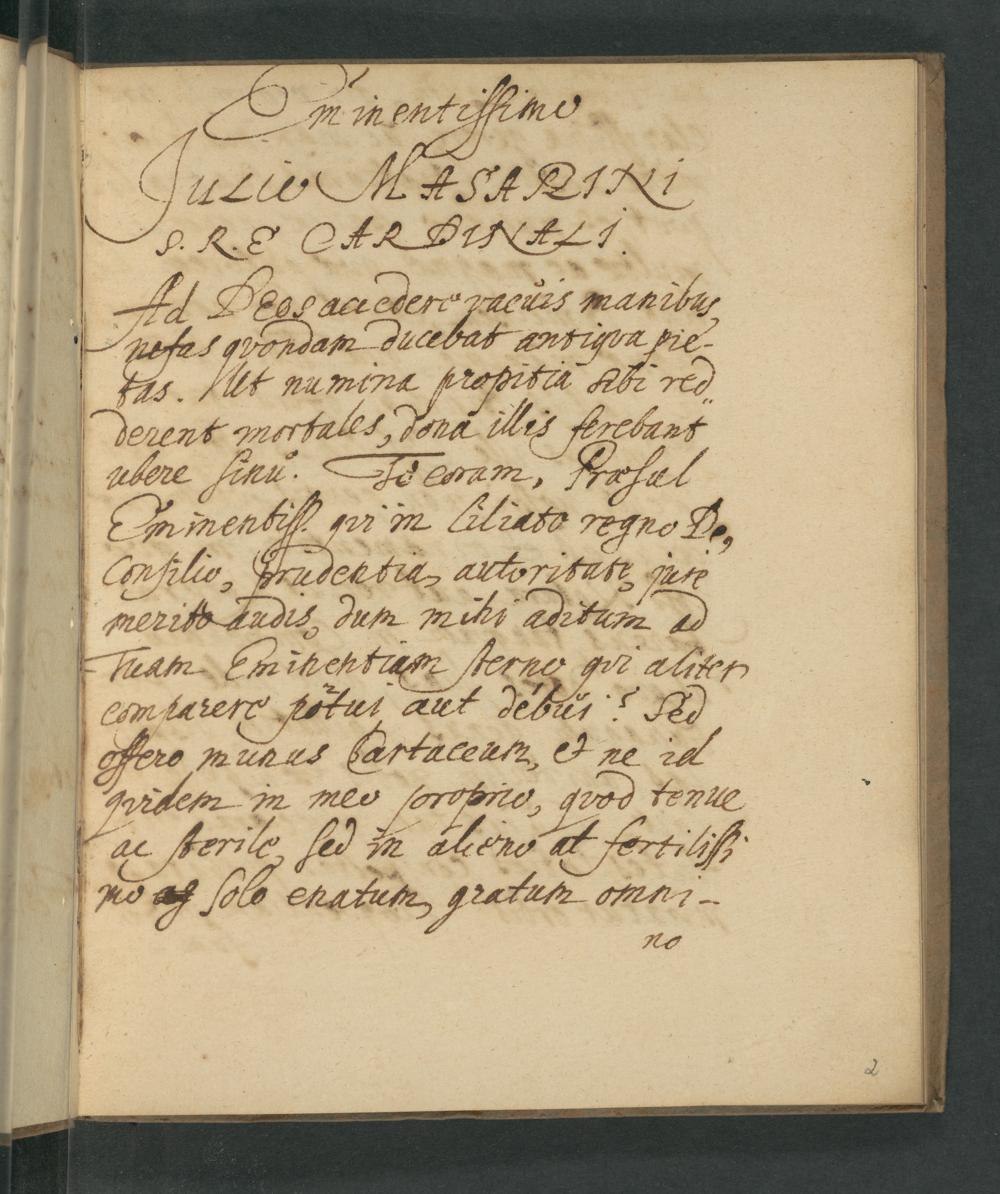 Eminentissimo
Julio MASARINI
S. R. E CARDINALI.
Ad Deos accedere vacuis manibus,
nefas qvondam ducebat antiqva pie-
tas. Ut numina propitia sibi red„
derent mortales, dona illis ferebant
ubere sinu. Te coram, Præsul
Eminentiss. qvi in Liliato regno De,
Consilio, prudentia, autoritate, jure
merito audis, dum mihi aditum ad
Tuam Eminentiam sterno qvi aliter
comparere potui aut debui? Sed
offero munus Cartaceum, et ne id
qvidem in meo proprio, qvod tenue
ac sterile, sed in alieno at fertilissi
mo solo enatum, gratum omni-
no
2